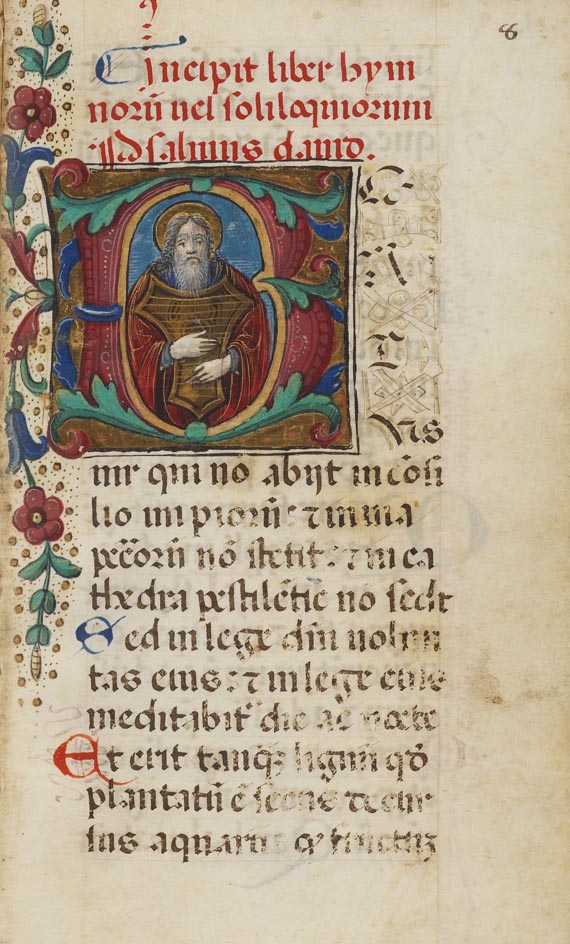 8
Incipit liber hym
norū uel soliloquiorum
Psalmus dauid.
B E
A
T
VS
uir qui nō abijt in cōsi
lio impiorū: ⁊ in uia
pec̄orū nō stetit: ⁊ in ca
thedra pestilētie nō sedit
Sed in lege dn̄i uolun
tas eius: ⁊ in lege eius
meditabit᷑ die ac nocte
Et erit tanq̄ lignū qd̄
plantatū ē secus decur
sus aquarū qd̄ fructū